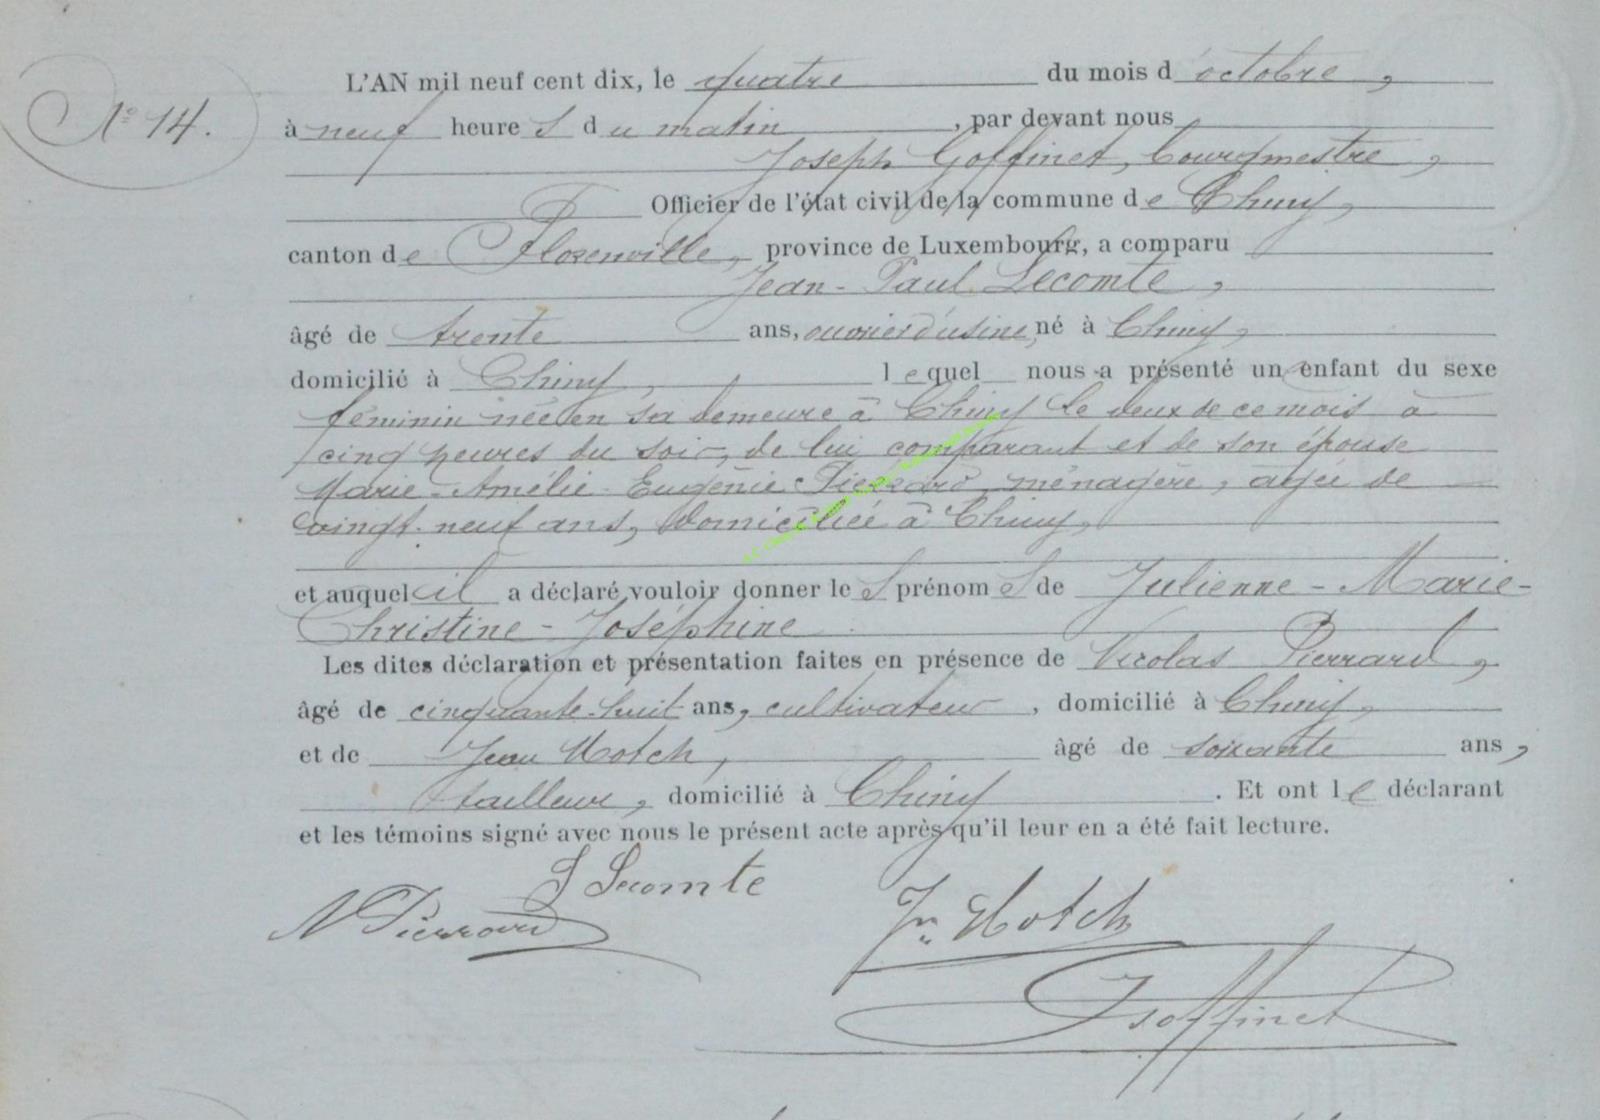 N° 14.
L'AN mil neuf cent dix, le quatre du mois d'octobre,
à neuf heures du matin, par devant nous
Joseph Goffinet, Bourgmestre,
Officier de l'état civil de la commune de Chiny,
canton de Florenville, province de Luxembourg, a comparu
Jean-Paul Lecomte,
âgé de trente ans, ouvrier d'usine, né à Chiny,
domicilié à Chiny, lequel nous a présenté un enfant du sexe
féminin née en sa demeure à Chiny le deux de ce mois à
cinq heures du soir, de lui comparant et de son épouse
Marie-Amélie-Eugénie Pierrard, ménagère, âgée de
vingt-neuf ans, domiciliée à Chiny,
et auquel il a déclaré vouloir donner les prénoms de Julienne-Marie-
Christine-Joséphine
Les dites déclaration et présentation faites en présence de Nicolas Pierrard,
âgé de cinquante-huit ans, cultivateur, domicilié à Chiny,
et de Jean Hotch, âgé de soixante ans,
tailleur, domicilié à Chiny. Et ont le déclarant
et les témoins signé avec nous le présent acte après qu'il leur en a été fait lecture.
Lecomte
N Pierrard
Jn Hotch
J Goffinet